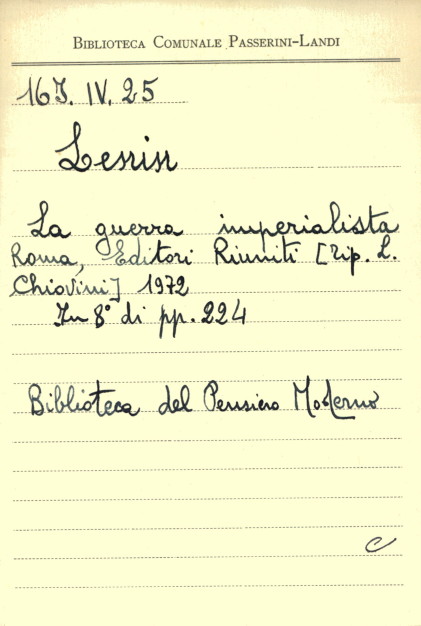 BIBLIOTECA COMUNALE PASSERINI-LANDI
16J. IV. 25
Lenin
La guerra imperialista
Roma, Editori Riuniti [tip. L.
Chiovini] 1972
In 8° di pp. 224
Biblioteca del Pensiero Moderno
C